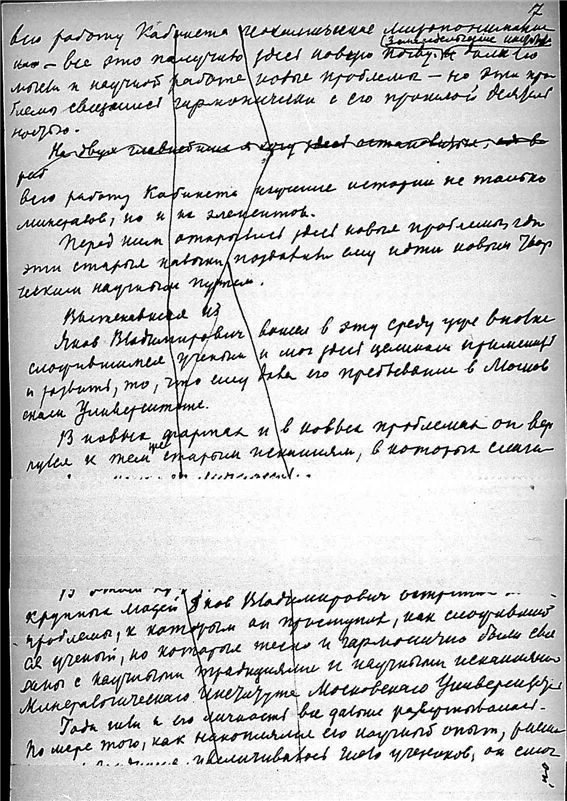 7
всю работу Кабинета миропонимание
— все это получило здесь новую
мысли и научной работе новые проблемы — но эти про
блемы свещались гармонически с его прошлой деятель
ностью.
На двух главнейших я хочу здесь остановиться,
раб
всю работу Кабинета изучение истории не только
минералов, но и их элементов.
Перед ним открылись здесь новые проблемы, где
эти старые навыки позволили ему идти новым твор
ческим научным путем.
Яков Владимирович вошел в эту среду уже вполне
сложившимся ученым и мог здесь целиком применять
и развить, то, что ему дало его пребывание в Москов
ском Университете.
В новых формах и в новых проблемах он вер
нулся к тем же старым исканиям, в которых слага
крупных людей Яков Владимирович встретил
проблемы, к которым он приступил, как сложивший
ся ученый, но которые тесно и гармонично были свя
заны с научными традициями и научными исканиями
Минералогическаго Института Московскаго Университета
Годы шли и его личность все дальше развертывалась.
По мере того, как накоплялся его научный опыт,
увеличивалось число учеников, он смог